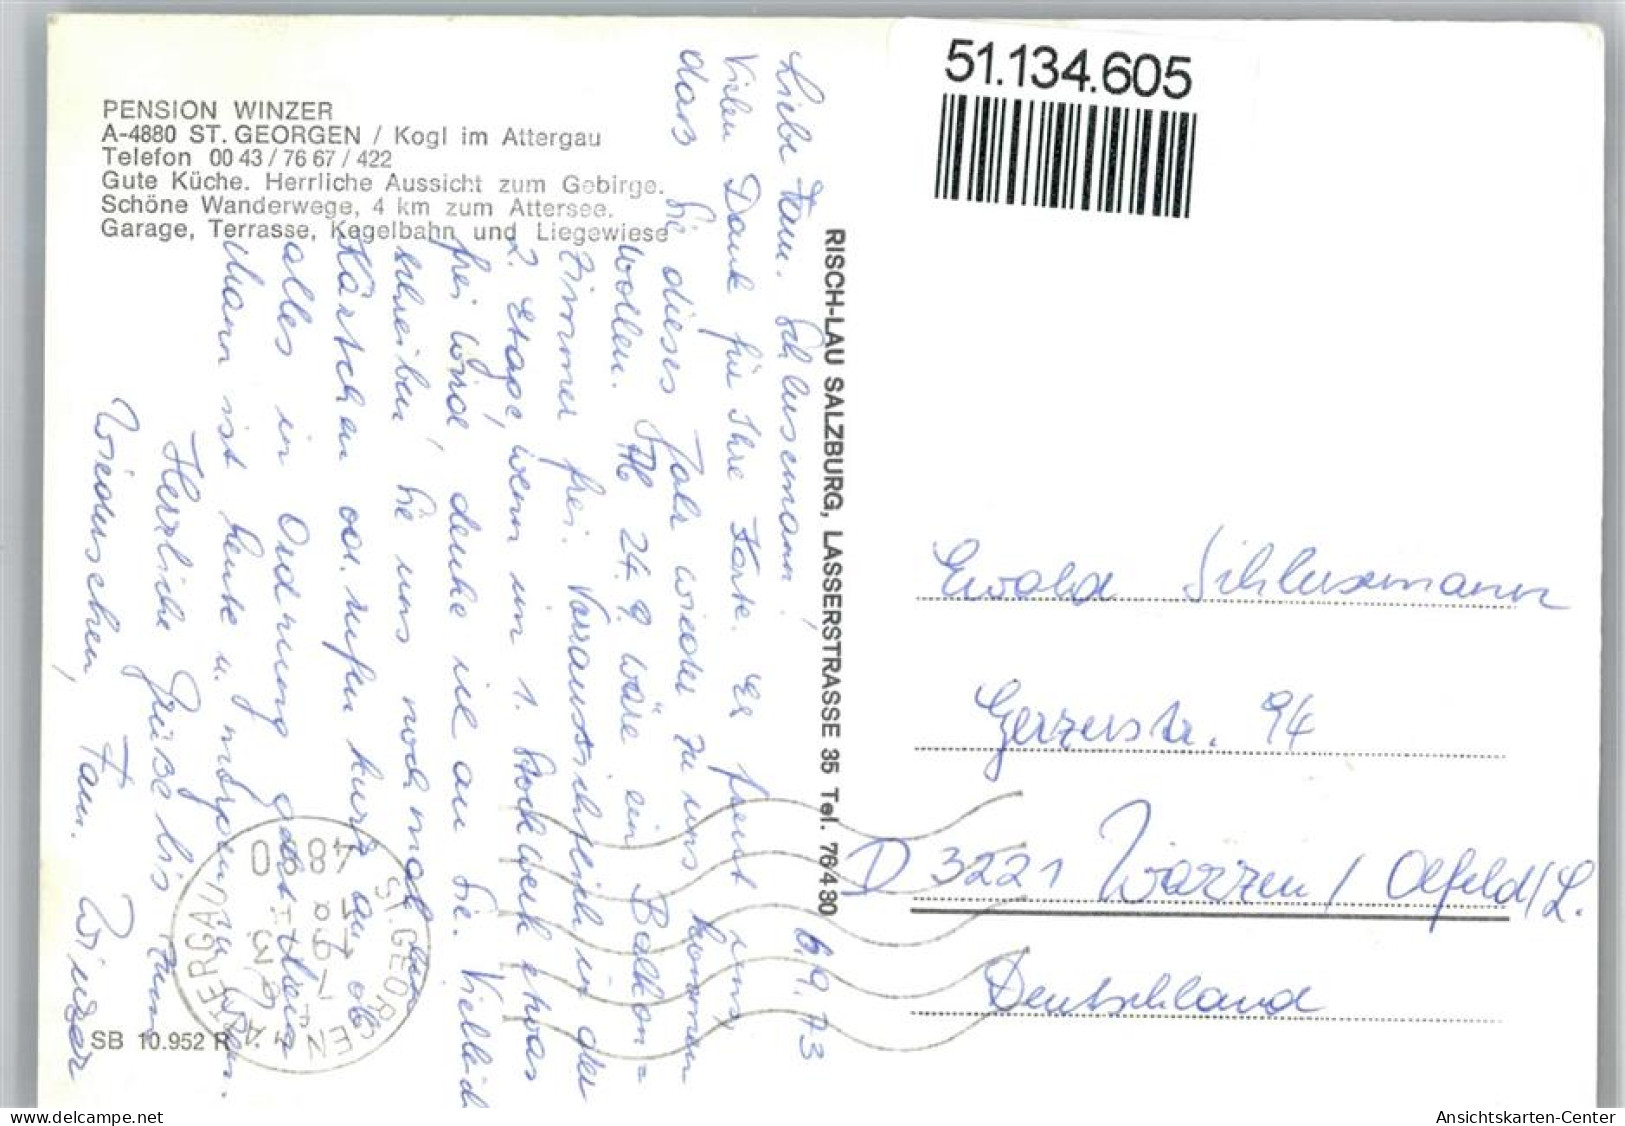 PENSION WINZER
A-4880 ST. GEORGEN / Kogl im Attergau
Telefon 00 43 / 76 67 / 422
Gute Küche. Herrliche Aussicht zum Gebirge.
Schöne Wanderwege, 4 km zum Attersee.
Garage, Terrasse, Kegelbahn und Liegewiese
51.134.605
6.9.73
Liebe Fam. Schlusemann!
Vielen Dank für Ihre Karte. Es freut uns,
dass Sie dieses Jahr wieder zu uns kommen
wollen. Ab 24.9. wäre ein Balkon=
zimmer frei. Voraussichtlich in der
2. Etage, wenn im 1. Stockwerk etwas
frei wird, denke ich an Sie. Vielleicht
schreiben Sie uns nochmal ein
Kärtchen od. rufen kurz an ob
alles in Ordnung geht. Meine
Mann ist heute u. morgen in Wien.
Herzliche Grüße bis zum
Wiedersehen, Fam. Winzer
RISCH-LAU SALZBURG, LASSERSTRASSE 35 Tel. 76 4 80
Ewald Schlusemann
Gerzerstr. 94
D 3221 Warzen / Alfeld/L.
Deutschland
4880
ST. GEORGEN
ATTERGAU
SB 10.952 R
Ansichtskarten-Center
www.ansichtskarten-center.de